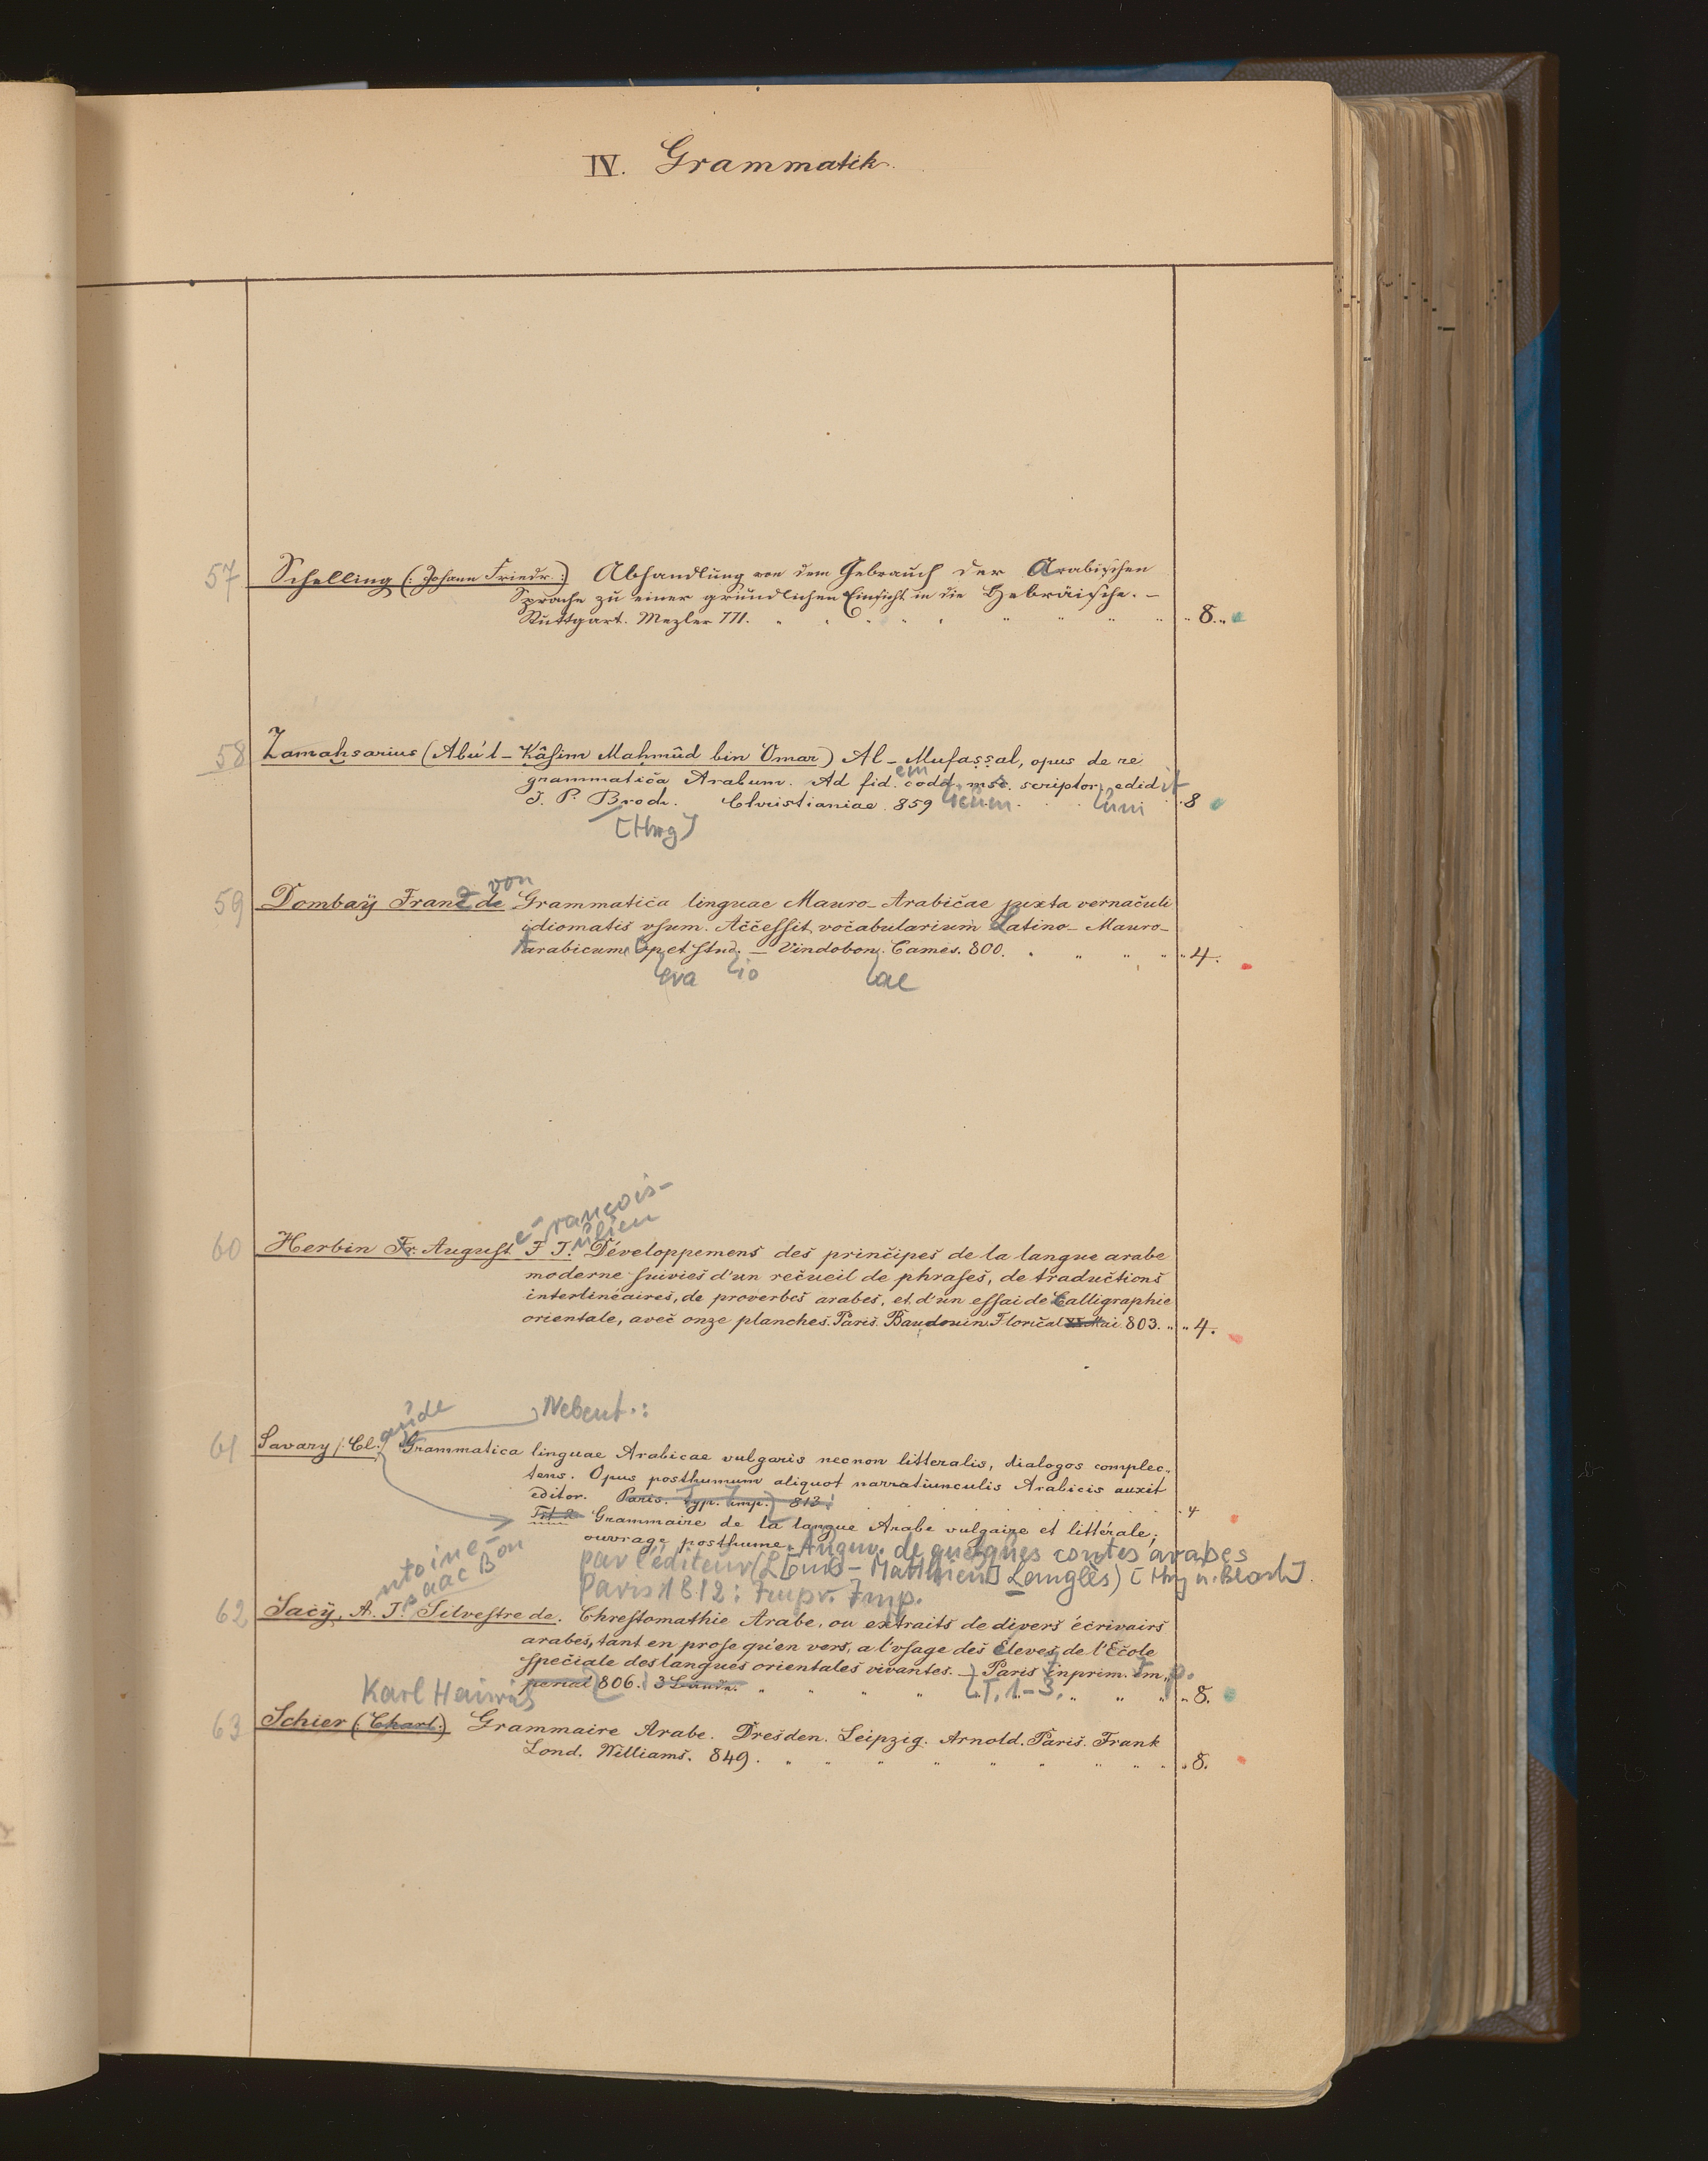 IV. Grammatik.
57 Schelling (: Johann Friedr :) Abhandlung von dem Gebrauch der Arabischen
Sprache zu einer gründlichen Einsicht in die Hebräische. –
Stuttgart. Mezler 771. 8.
58 Zamahsarius (Abu'l-Kâsim Mahmûd bin Omar) Al-Mufassal, opus de re
em
grammatica Arabum. Ad fid. codd. msc. scriptor. edidit
J. P. Broch. Christianiae. 859 icum. 8
[Hrsg]
von
59 Dombaÿ Franz de Grammatica linguae Mauro-Arabicae juxta vernaculi
idiomatis vsum. Accessit vocabularium Latino-Mauro-
Arabicum. Op. et stud. – Vindobon. Cames. 800. 4.
era io ae
rançois-
e- ulien
60 Herbin Fr. August F J. Développemens des principes de la langue arabe
moderne suivies d'un recueil de phrases, de traductions
interlinéaires, de proverbes arabes, et d'un essai de Calligraphie
orientale, avec onze planches. Paris. Baudouin. Florical XI Mai 803. 4.
aude Nebent.:
61 Savary (: Cl. :) Grammatica linguae Arabicae vulgaris necnon litteralis, dialogos complec-
tens. Opus posthumum aliquot narratiunculis Arabicis auxit
editor. Paris. typ. imp. 813. 4
Tit 2 Grammaire de la langue Arabe vulgaire et littérale;
ouvrage posthume. Augm. de quelques contes arabes
par l'éditeur (L[ouis-Matthieu] Langlès) [Hrg u. Bearb].
Paris 1812: Impr. Imp.
ntoine-
aac Bon
62 Sacÿ, A. J. Silvestre de. Chrestomathie Arabe, ou extraits de divers écrivairs
arabes, tant en prose qu'en vers, a l'vsage des Eleves de l'Ecole
speciale des langues orientales vivantes. – Paris inprim. Im- p.
perial 806. 3 Bände. T. 1-3. 8.
Karl Heinrich
63 Schier (: Charl. :) Grammaire Arabe. Dresden. Leipzig. Arnold. Paris. Frank
Lond. Williams. 849. 8.